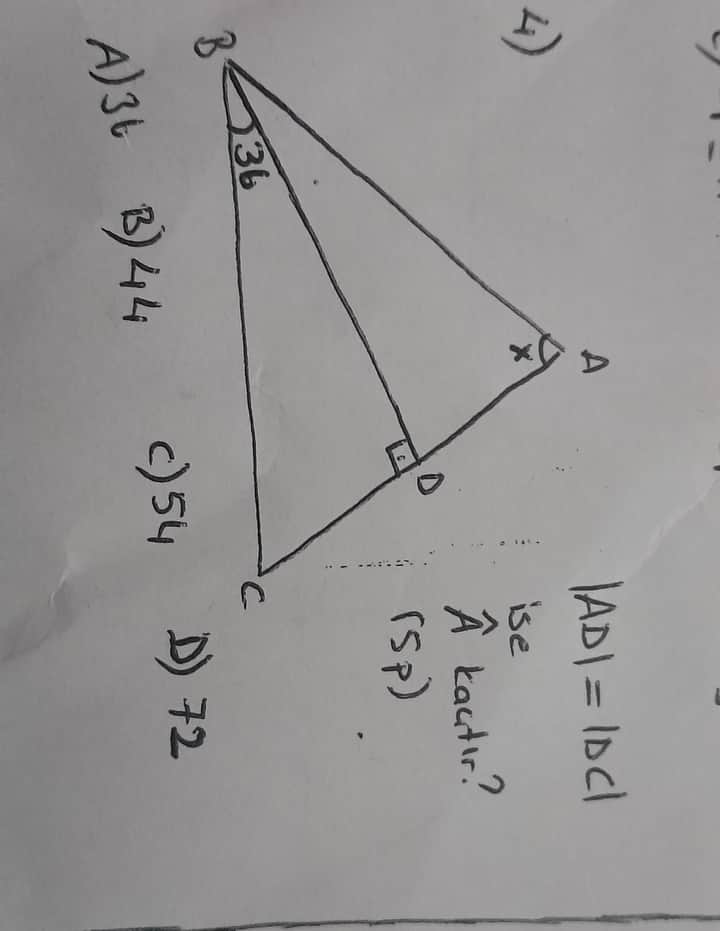 4)
A
x
D
B
36
C
|AD| = |DC|
ise
Â kaçtır?
(5p)
A) 36 B) 44 C) 54 D) 72